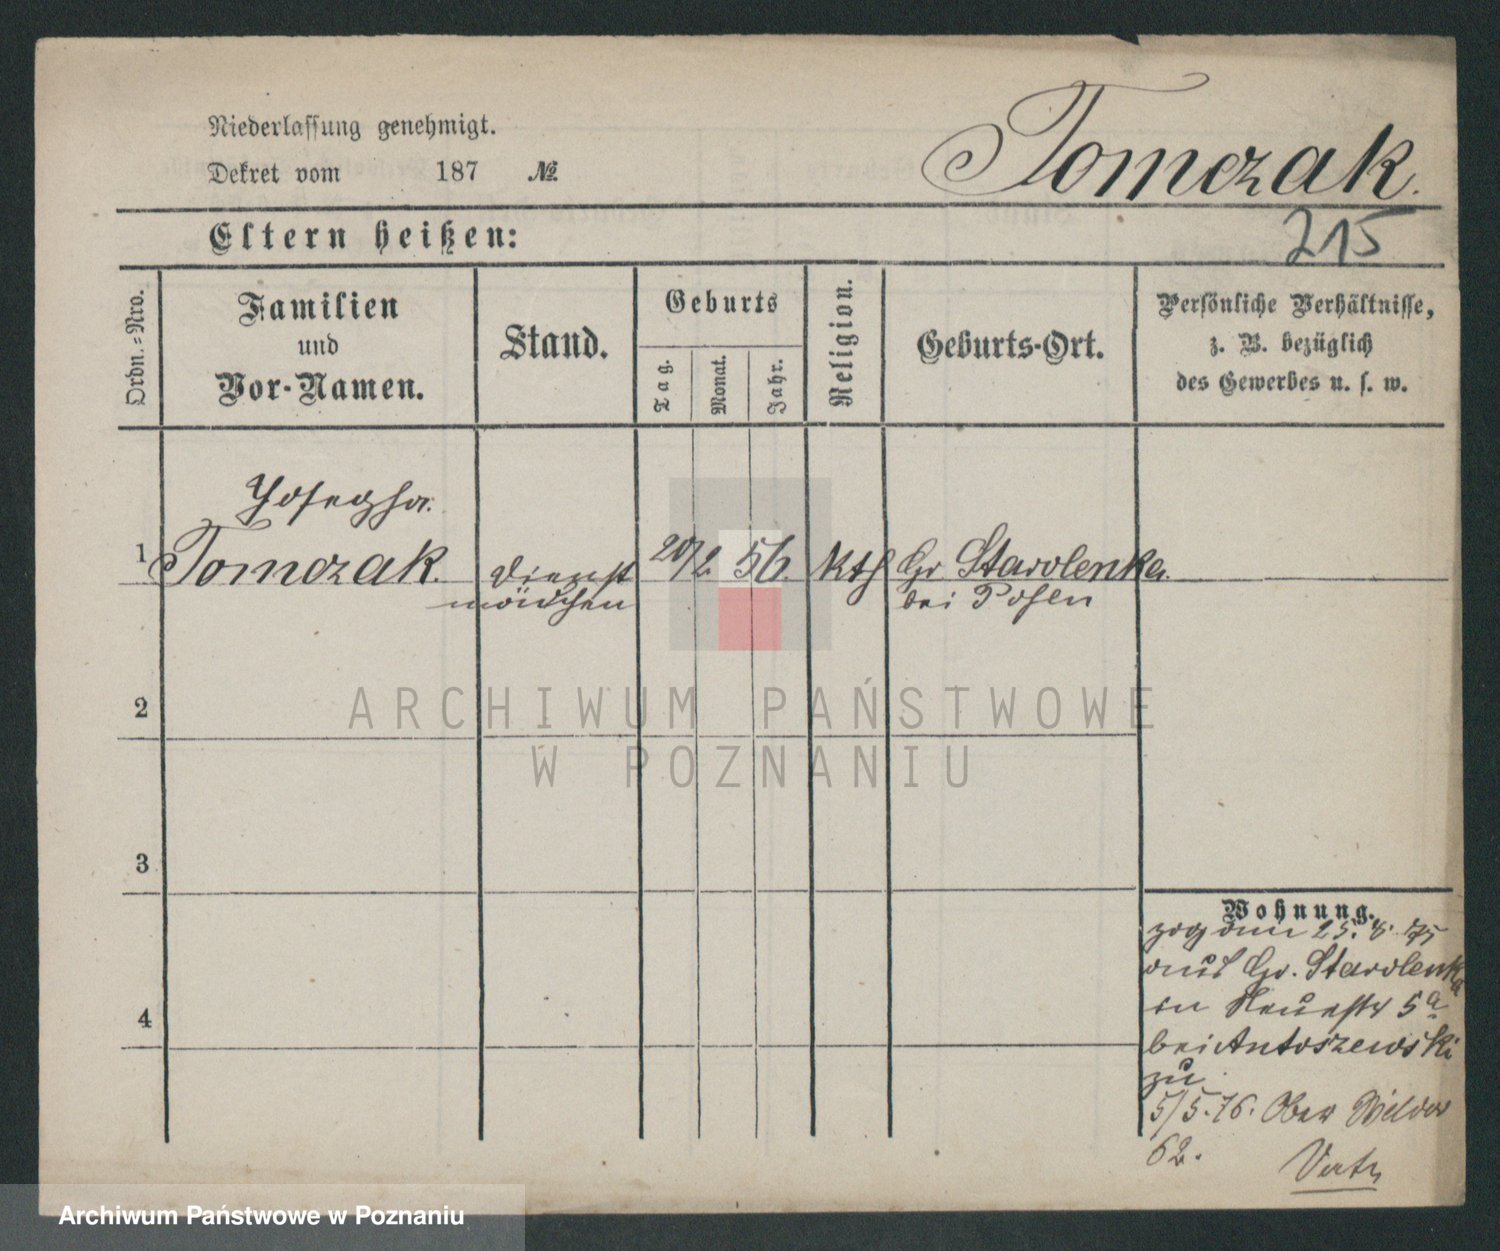 Niederlassung genehmigt.
Dekret vom 187 №
Tomczak.
215
Eltern heißen:
Ordn.-Nro.
Familien
und
Vor-Namen.
Stand.
Geburts
Tag.
Monat.
Jahr.
Religion.
Geburts-Ort.
Persönliche Verhältnisse,
z. B. bezüglich
des Gewerbes u. s. w.
Josepha
1 Tomczak. Dienst 20/2 56. kth Gr Starolenka.
mädchen bei Posen
2
3
4
Wohnung.
zog am 25. 8. 75
aus Gr. Starolenka
in Neuestr 5a
bei Antoszewski
zu
5/5.76. Ober Wilda
62.
ARCHIWUM PAŃSTWOWE
W POZNANIU
Archiwum Państwowe w Poznaniu